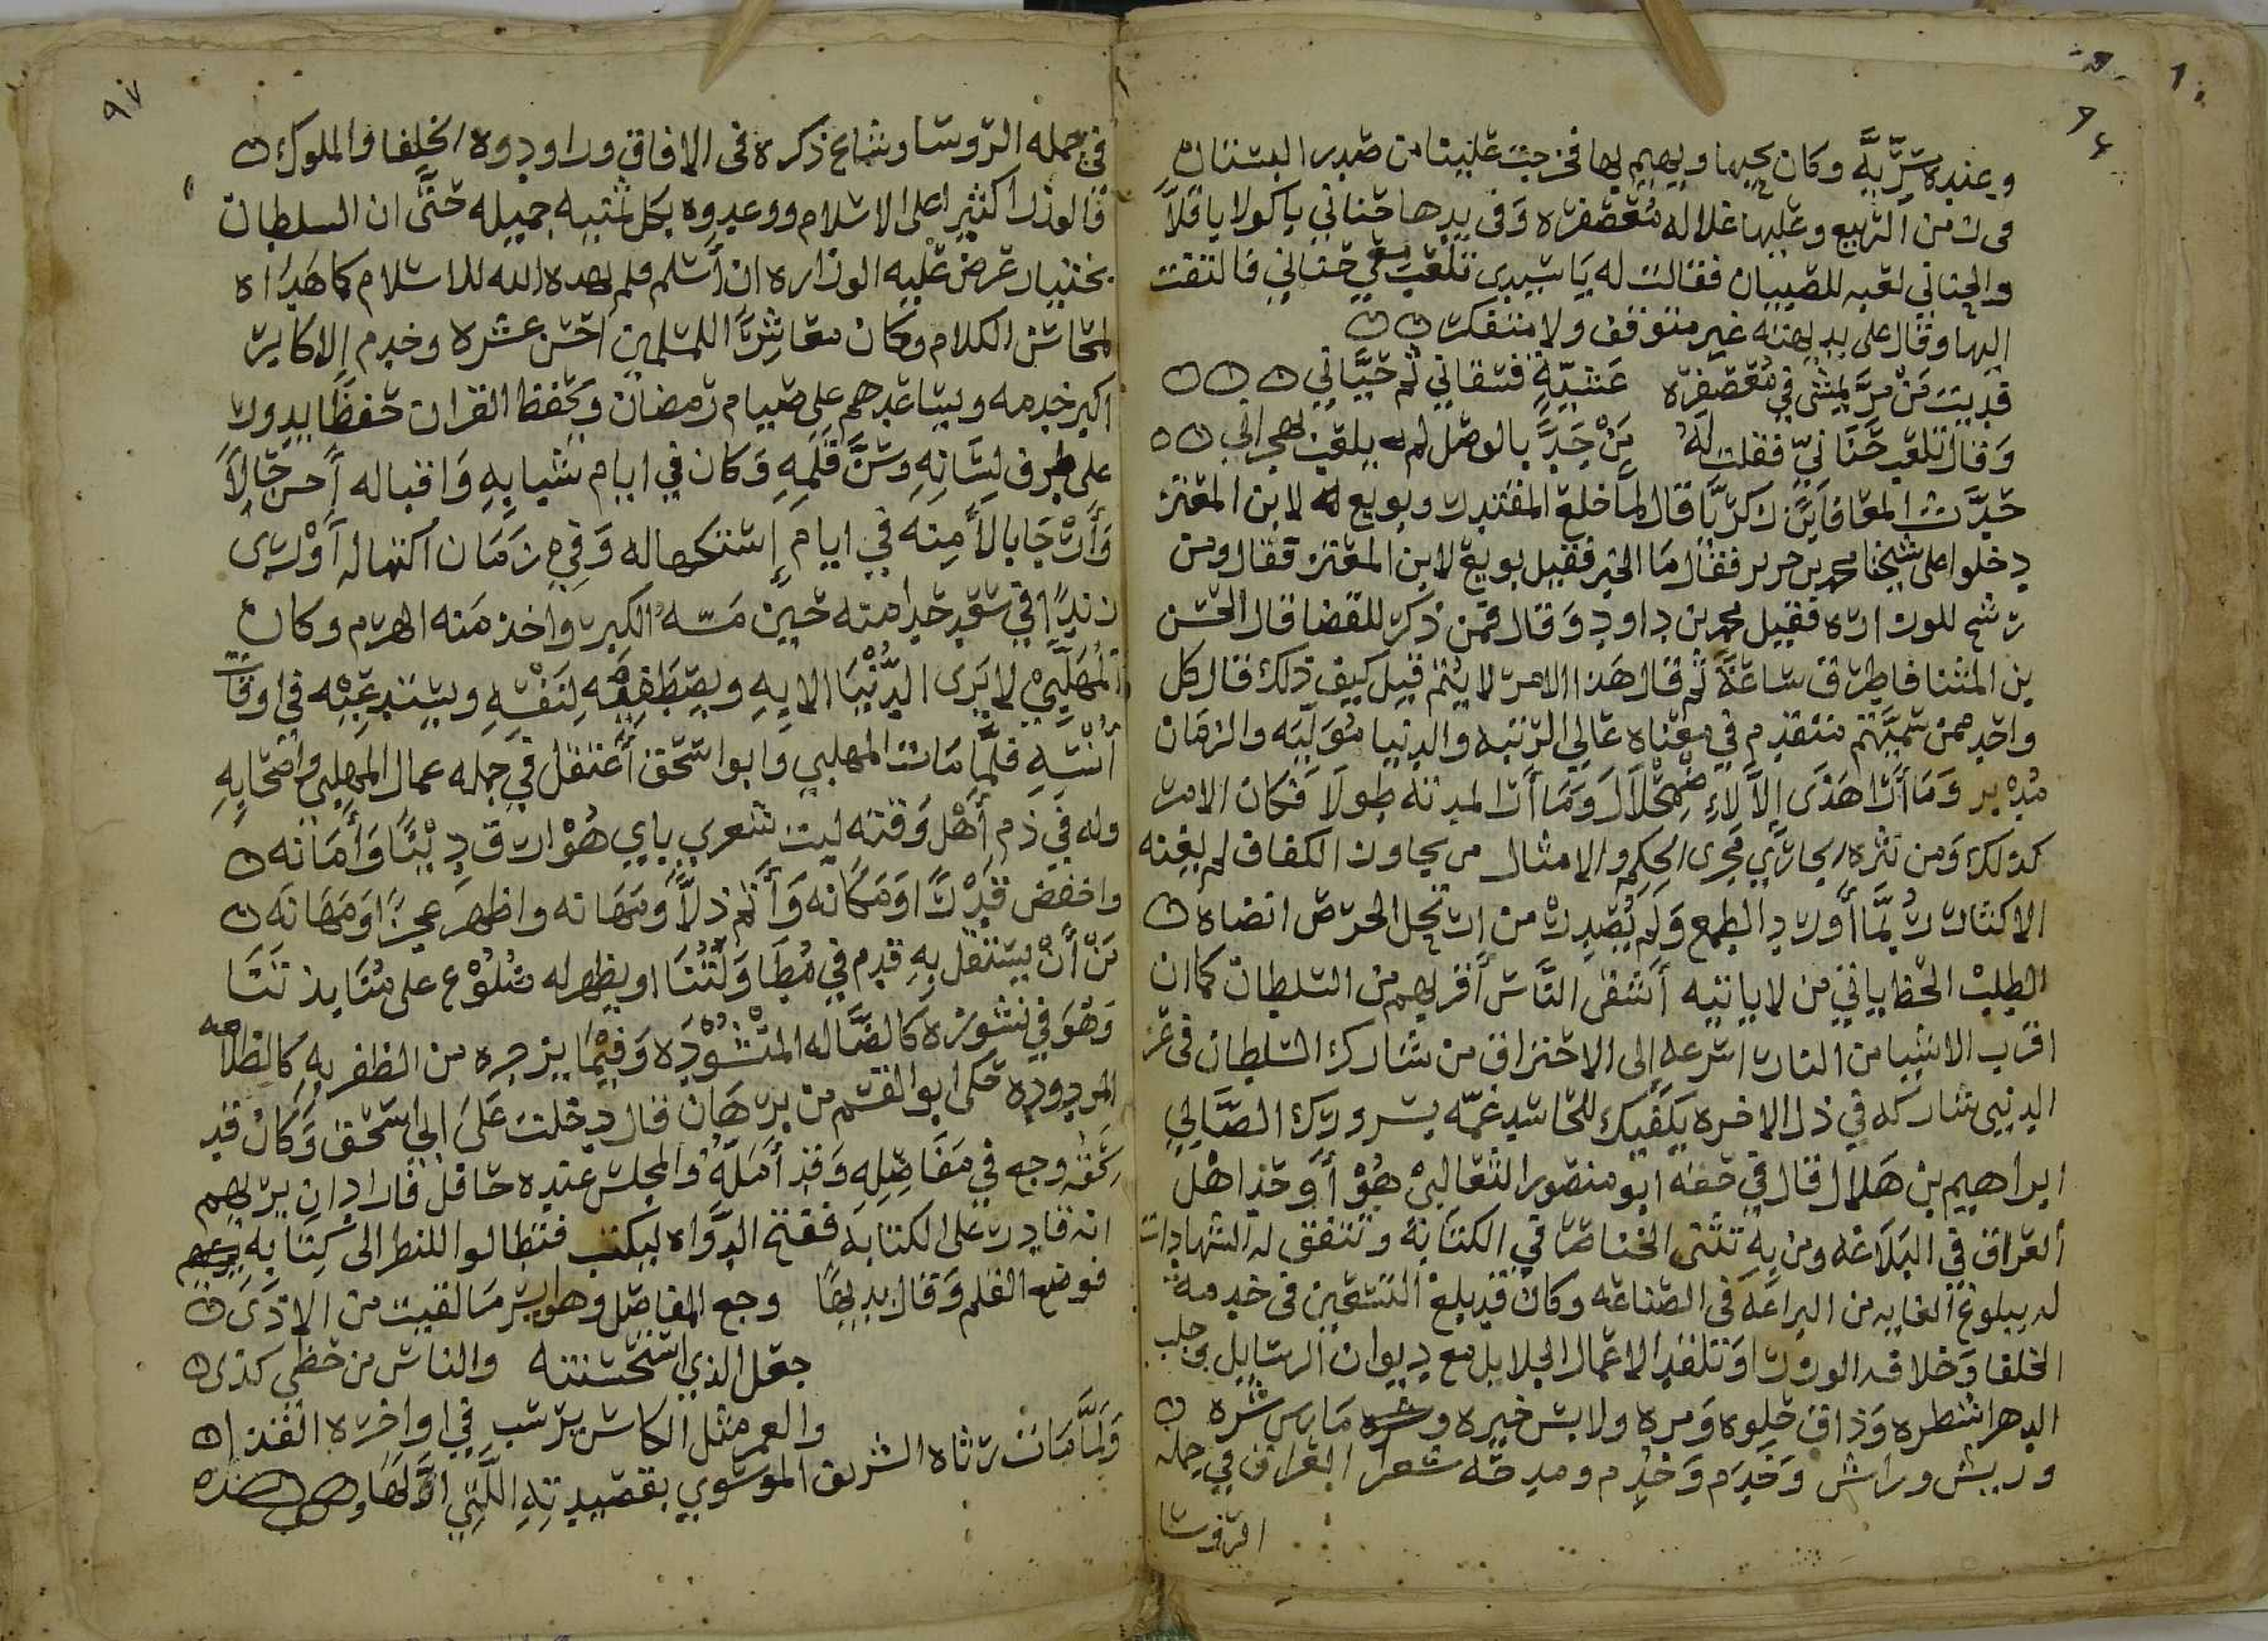 وعنده سُرِّيَّه وكان يحبها ويهيم بها فخرجت علينا من صدر البستنان
فى زمن الربيع وعليها غلاله مُعَصفره وَفى يدها جنابي باكولا باقلَّا
والجنابي لعبه للصبيان فقالت له يَا سيدى تلعَب معي جنابي فالتفت
اليها وقال على بديهته غير متوقف ولا متفكر
فديت مَنْ مرَّ يمشى في مُعَصفرَه عَشيّةٍ فسقاني ثم حيَّاني
وَقال تلعَب جَنَابيّ فقلت لهُ مَنْ جَدَّ بالوصل لم يلعب بهجراني
حَدَّث المعافا بْن زكريَّا قال لمَّا خلع المقتدر وبويع له لابن المعتز
دخلوا على شيخنا محمد بن جرير فقال مَا الخبر فقيل بويع لابن المعتز فقال ومن
رشح للوزاره فقيل محمد بن داود وَقال فمن ذكر للقضا قال الحسن
بن المثنا فاطرق سَاعَةً ثم قال هَذا الامر لا يُتم قيل كيف ذلك قال كل
واحد ممن سمَّيتم متقدم في معناه عَالي الرتبه والدنيا مُوَلّيَه والزمان
مُدْبر وَمَا أَرَا هَذَى إلّا لاءٍ ضمحْلَال وَمَا أَرَا لمدته طولَا فكان الامر
كذلك وَمن نثره الجاري مجرى الحِكم والامثال من يجاوز الكفاف لم يغنه
الاكثار رُبمَّا أَورد الطمع وَلم يُصدر من ارتحل الحرص انضاه
الطلبْ الحظ ياتي من لا ياتيه أشقى النَّاس أقربهم من السلطان كما ان
اقرب الاشيا من النار اسرعه إلى الاحتراق من شارك السلطان فى عز
الدنيى شاركه في ذل الاخره يَكفيك للحاسد غمّه بسرورك الصَّابي
ابراهيم بن هَلال قال في حقه ابو منصور الثعالبيْ هُوْ أَوحد اهْل
ألعراق في البَلاغه ومن بِهِ تثنى الخناصر في الكتَابَة وتتفق له الشهادات
له ببلوغ ألغايه من البراعَة فى الصّناعه وكان قد بلغ التسعين فى خدمه
الخلفا وَخلافه الوزرا وَتقلّد الاعمال الجلايل مع ديوان الرسَايل وحلب
الدهر اشطره وَذاق حلوه وَمره ولابس خيره ومارس شره
وريش وراش وَخَدَم وَخُدِم ومدحَّه شعرا العراق في جمله
الروسا
٩٧
في جمله الرّوسَا وشاع ذكره فى الافاق وراودوه الخلفا والملوك
فالوزرا كثيرا على الاسلام ووعدوه بكل منيه جميله حتَّى ان السلطان
بختيار عرض عَليه الوزاره ان أَسلم فلم يهده الله للاسلام كما هَدَاه
لمحاسن الكلام وَكان معَاشِرًا للمسلمين احسن عشره وخدم الاكابر
اكبر خدمه ويسَاعدهم على صيام رمضان وَيحفظ القران حفظًا يدور
على طرف لسَانهِ وَسنّ قلمِهِ وَكان في ايام شبابِهِ وَاقباله أحسن حَالًا
وَأَرْخَا بالًا مِنه في ايام إستكهاله وَفي زمَان اكتهاله أَوْرى
زندًا في سَعد خدامته حين مَسّهُ الكبر واخذ مَنه الهرم وكان
المُهَلّبيْ لا يَرى الدُّنيَا الا بهِ ويصطَفيْه لِنَفْسِهِ ويستدعيْه في اوقات
أُنْسَهِ فلمَّا مَات المهلبي وَابو اسحَق أَعتقل في جمله عمال المهلبي وَاصحَابه
وله في ذم أهْل وَقته ليت شعري باي هُوْ ارق دِيْنًا وَأَمَانه
واخفض قدْرًا وَمَكَانه وَأَتم ذلًّا وَمَهَانه واظهر عجزًا وَمَهَانه
مَنْ أَنْ يستقل بِهِ قدم في مُطَاوَلَتُنا او يظهر له ضلُوْع على مُنَابذتنَا
وَهُوَ في نشوزه كالضَّاله المنْشُوْدَه وَفيْمَا يزجره من الظفر بِهِ كَالظلامه
المردوده حَكى ابو القسم من برهَان قال دخلت عَلى ابي اسحق وَكان قد
لحقه وجع في مَفَاصِلِهِ وَقد أمَلَّه والمجلس عنده حَافل فاراد ان يريهم
انه قادر على الكتابه ففتح الدَّوَاه ليكتب فتطالوا للنظر الى كتَابه
فوضع القلم وَقال بديهًا وجع المفاصل وهو ايسر مَا لقيت من الاذَى
جعل الذي استحسنته والناس من حظى كذى
والعمر مثل الكاس يرسب في اواخره القذا
وَلَمّا مَات رثاه الشريف الموسَوي بقصيدتهِ اللّتي اوّلهَا